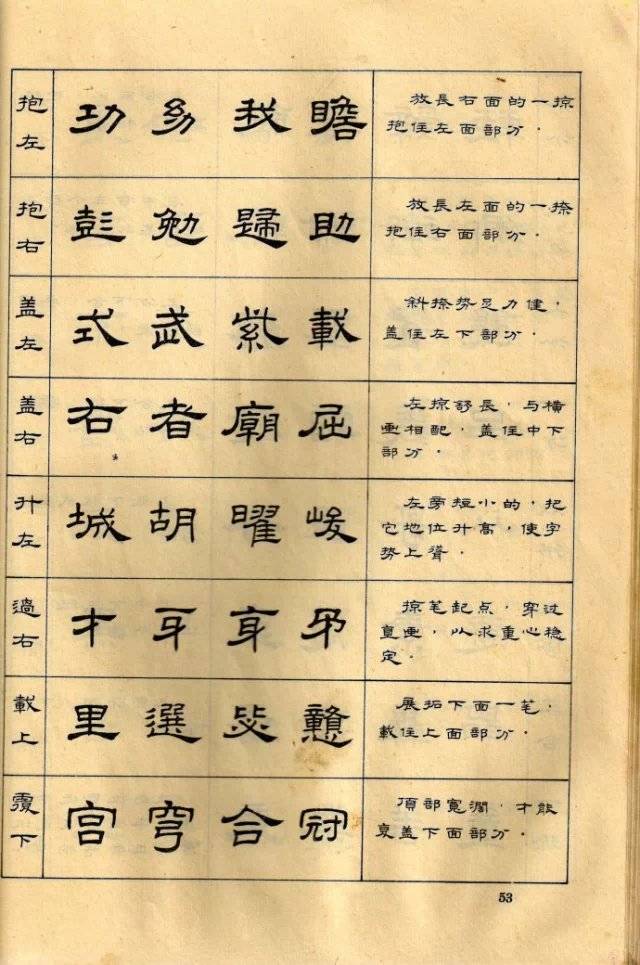 抱左 功 幼 我 瞻 放長右面的一掠
抱住左面部分．
抱右 彭 勉 歸 助 放長左面的一捺
抱住右面部分．
盖左 式 武 紫 載 斜捺势足力健，
盖住左下部分．
盖右 右 者 廟 屈 左掠舒長，与横
画相配，盖住中下
部分．
升左 城 胡 曜 峻 左旁短小的，把
它地位升高，使字
势上聳．
過右 才 牙 身 矛 掠笔起点，穿过
直画，以求重心稳
定．
載上 里 選 毖 戆 展拓下面一笔，
載住上面部分．
覆下 宫 穹 合 冠 頂部寬濶，才能
盖下面部分．
53